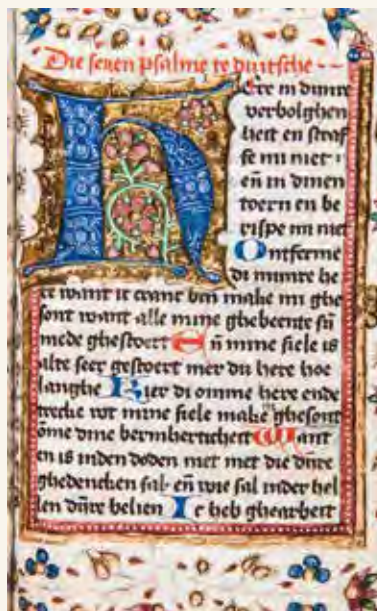 Die seuen psalme te duitsche
HEre in dinre
verbolghen
heit en straf
fe mi niet ·
en̄ in dinen
toern en be
rispe mi niet
Ontferme
di minre he
re want ic cranc ben make mi ghe
sont want alle mine ghebeente sij̄
mede ghestoert En̄ mine siele is
alte seer gestoert mer du here hoe
langhe Kier di omme here ende
trecke wt mine siele make ghesont
ōme dine bermherticheit Want
en is inden doden niet met die dijnre
ghedencken sal en̄ wie sal inder hel
len dijnre belien Ic heb ghearbeit